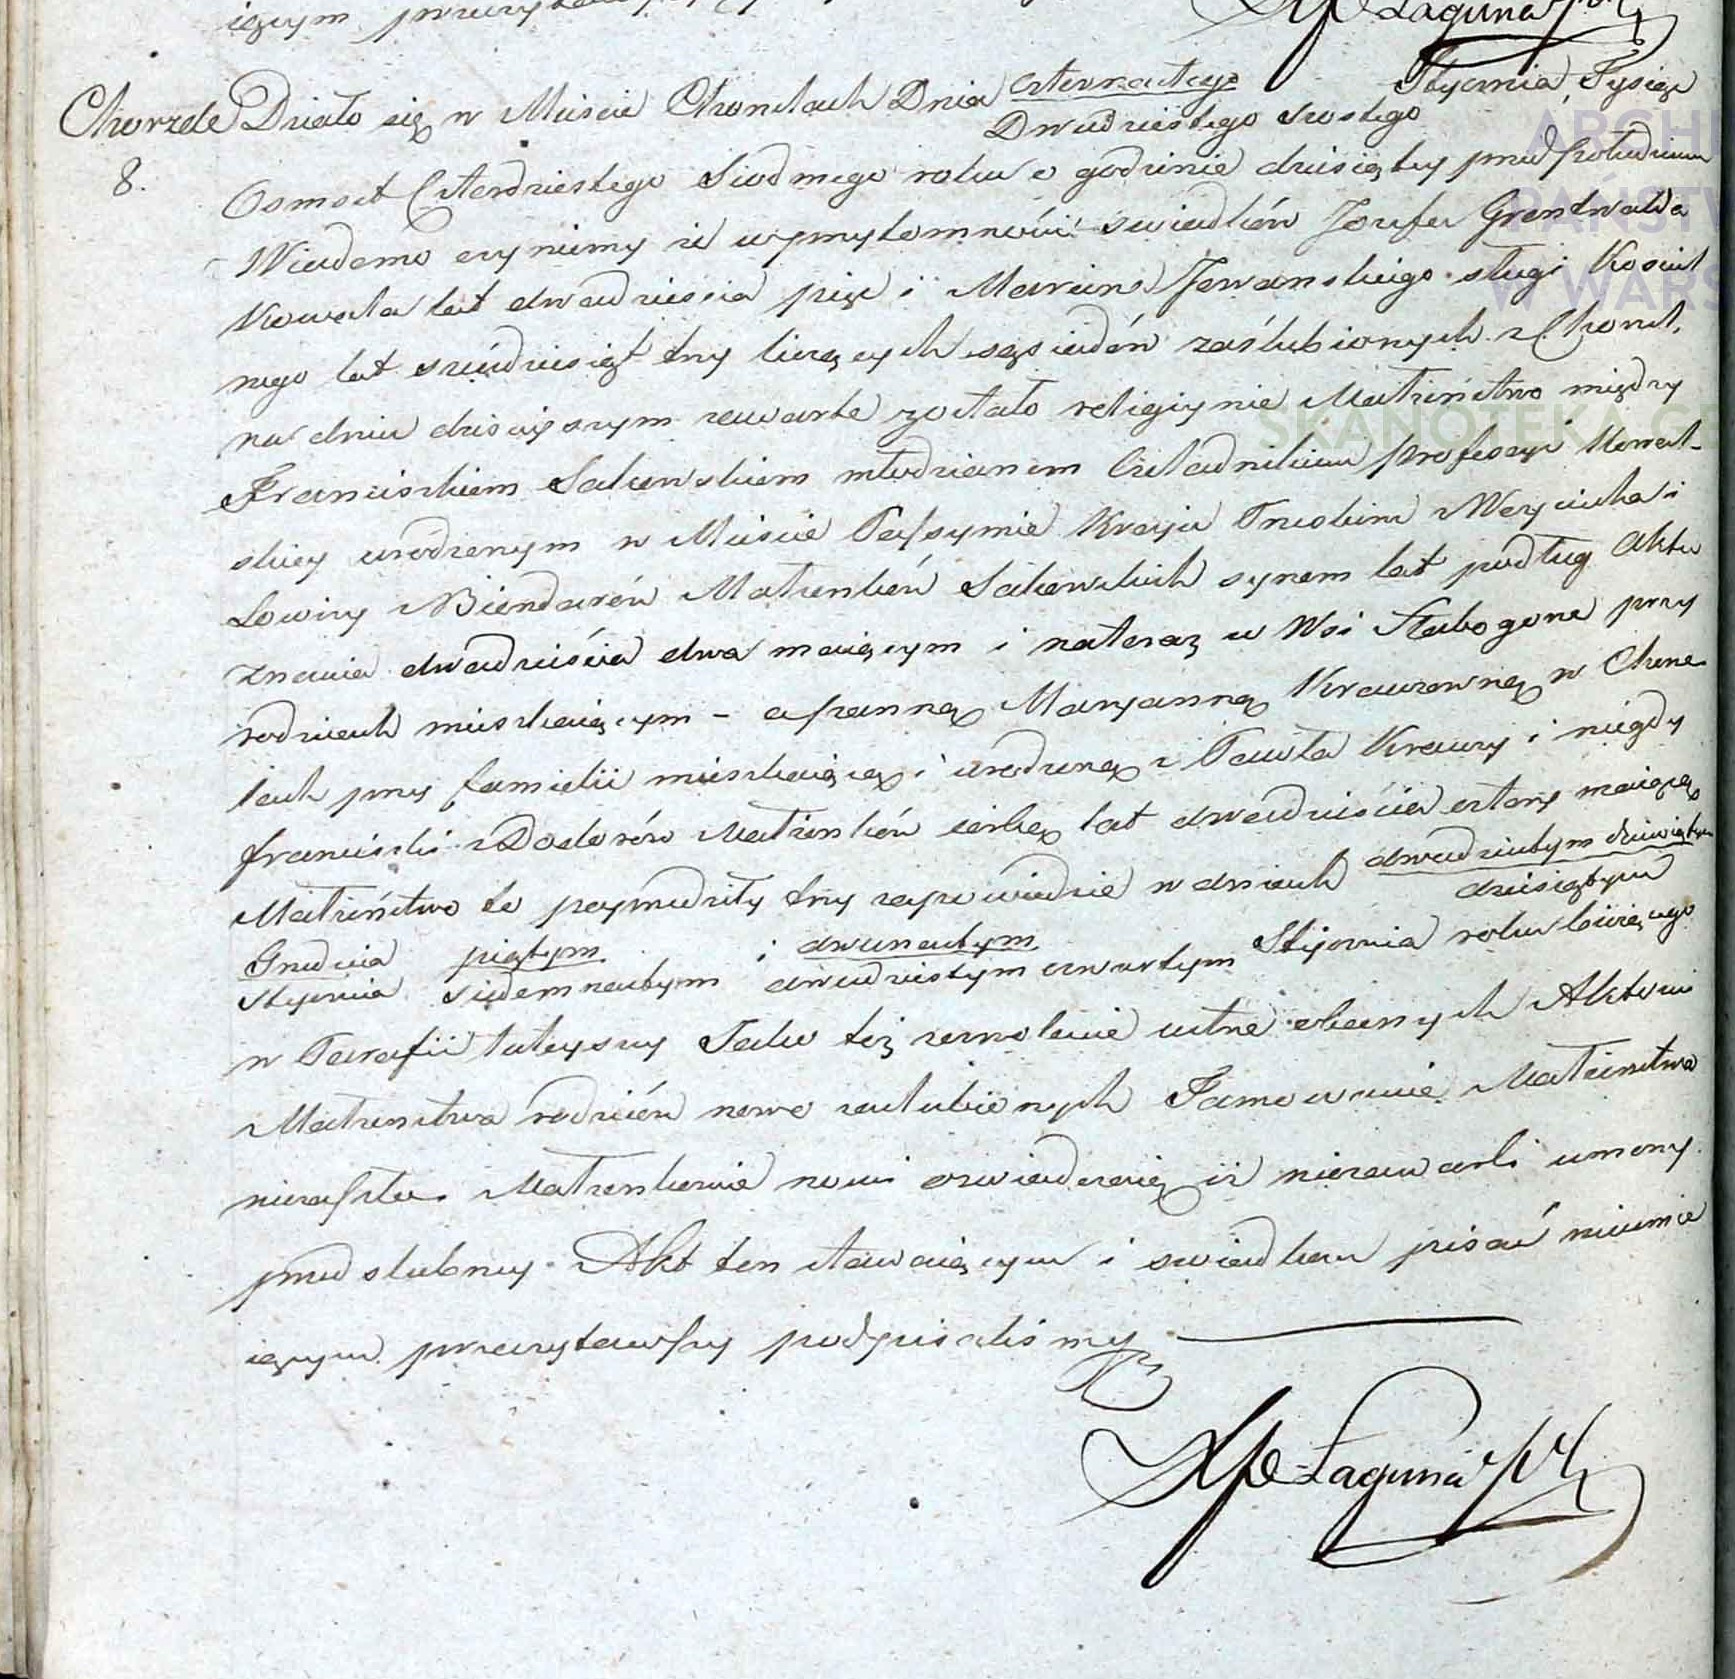 iącym przeczyta
XJP Łaguna
Chorzele Działo się w Mieście Chorzelach Dnia czternastego Stycznia Tysiąc
8.
Dwudziestego szostego
Osmset Czterdziestego Siodmego roku o godzinie dziesiątey przed południem
Wiadomo czynimy iż w przytomności swiadków Jozefa Grentwalda
Kowala lat dwadzieścia pięć i Marcina Jewanskiego sługi Kosciel
nego lat sześćdziesiąt trzy liczących sąsiadów zaślubionych z Chorzel.
na dniu dzisieyszym zawarte zostało religiynie Małżeństwo między
Franciszkiem Sakowskiem młodzianem Czeladnikiem professyi Kowal-
skiey urodzonym w Mieście Passymie Kraju Pruskim z Woyciecha i
Lowizy z Biendarów Małżonków Sakowskich synem lat podług Aktu
Znania dwadzieścia dwa maiącym i na teraz w Wsi Stabogóra przy
rodzicach mieszkaiącym – a panną Maryanną Krauzowną w Chorze
lach przy familii mieszkaiącą i urodzoną z Pawła Krauzy i niegdy
franciszki z Doderów Małżonków córką lat dwadzieścia cztery maiącą
Małżeństwo to poprzedziły trzy zapowiedzie w dniach dwudziestym dziewiątym
dziesiątym
Grudnia piątym i dwunastym
Stycznia siedemnastym dwudziestym czwartym Stycznia roku bieżącego
w Parafii tuteyszey Jako też zezwolenie ustne obecnych Aktowi
Małżeństwa rodziców nowo zaslubionych Tamowanie Małżeństwa
niezaszło. Małżonkowie nowi oswiadczaią iż niezawarli umowy
przedslubney. Akt ten stawaiącym i swiadkom pisać nieumie
iącym przeczytawszy podpisaliśmy
XJP Łaguna
ARCHI
PAŃSTW
W WARS
SKANOTEKA GE